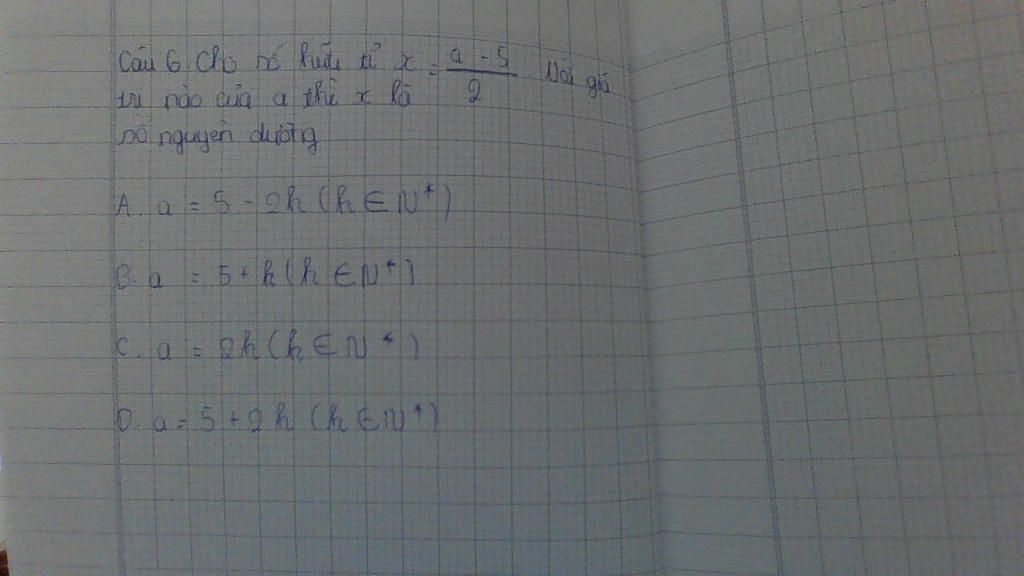 Câu 6. Cho số hữu tỉ x = a - 5 / 2 Với giá
trị nào của a thì x là
số nguyên dương
A. a = 5 - 2k (k ∈ N*)
B. a = 5 + k (k ∈ N*)
C. a = 2k (k ∈ N*)
D. a = 5 + 2k (k ∈ N*)